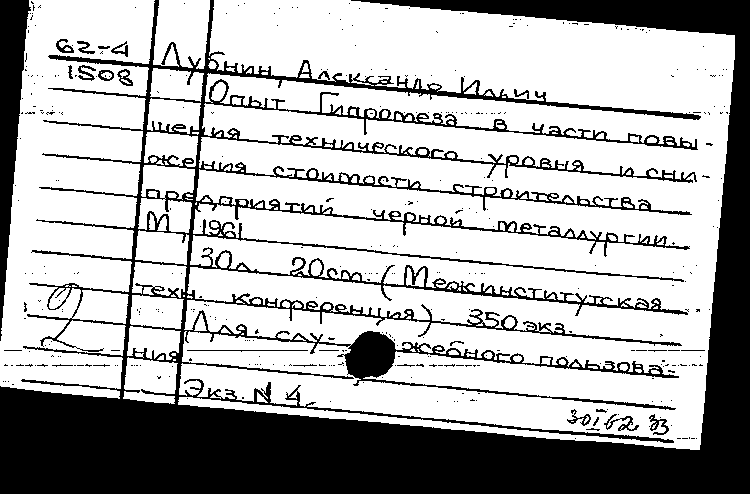 62-4
1508
Лубнин, Александр Ильич
Опыт Гипромеза в части повы-
шения технического уровня и сни-
жения стоимости строительства
предприятий черной металлургии.
М, 1961
30л. 20cm. (Межинститутская
техн. конференция) 350 экз.
2
Для слу- жебного пользова-
ния.
Экз. N 4.
30I62. 33